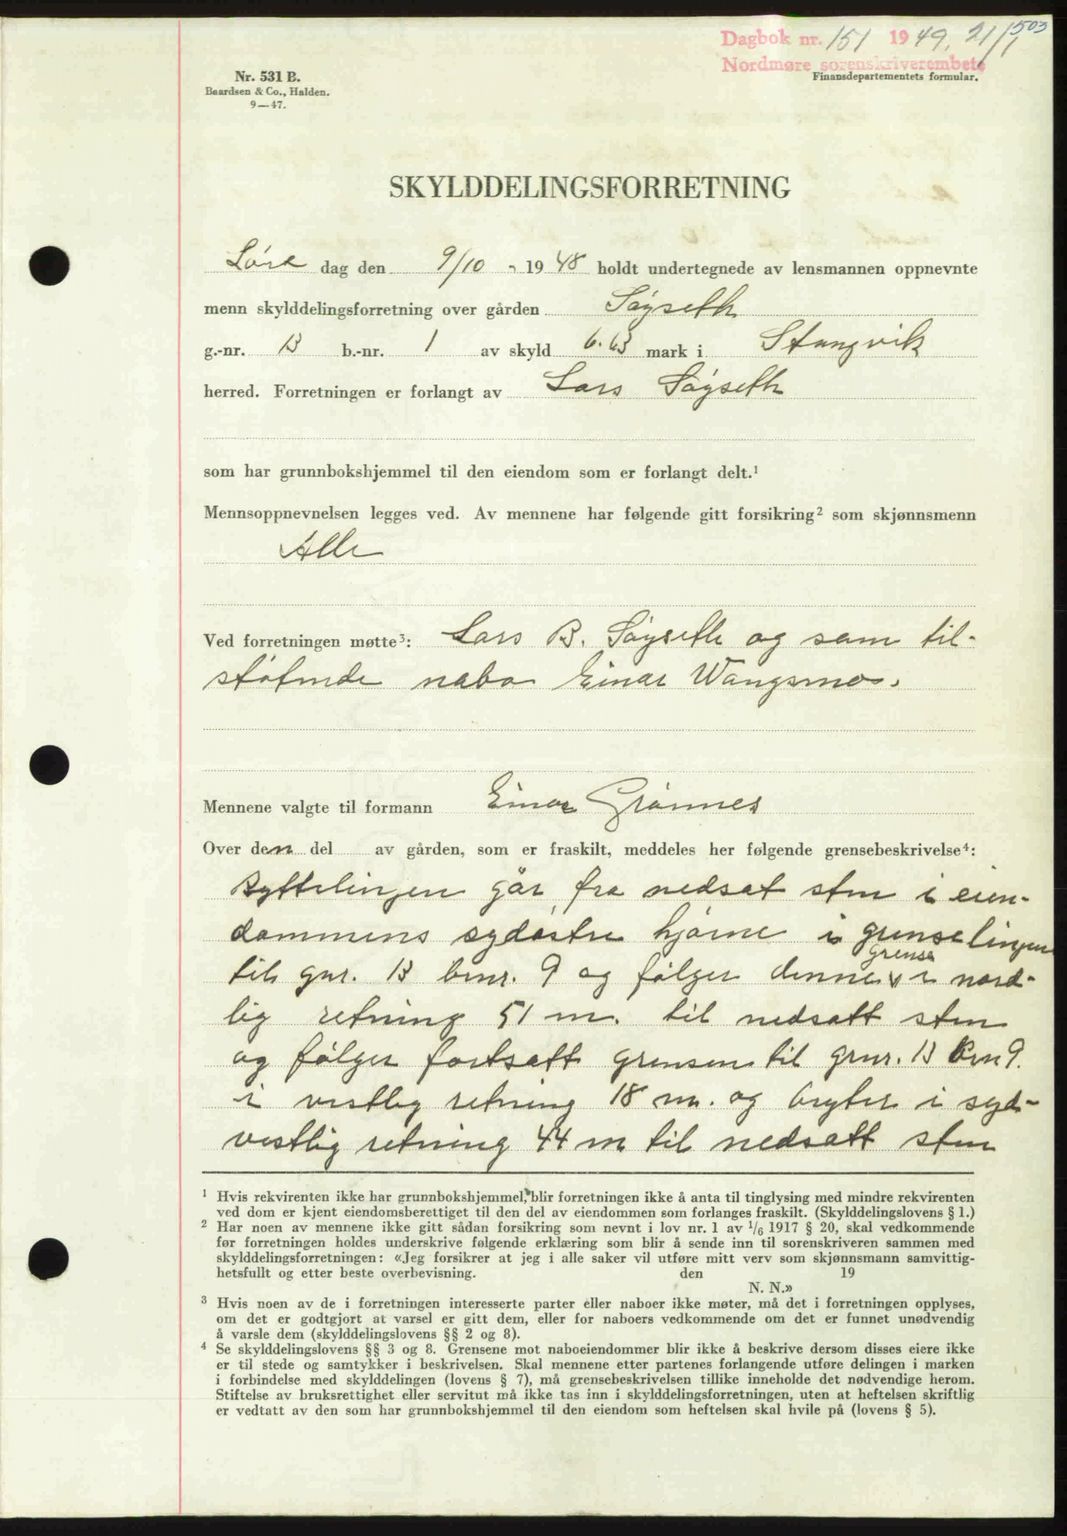 503
Dagbok nr. 151 1949. 21/1
Nordmøre sorenskriverembete
Nr. 531 B.
Baardsen & Co., Halden.
9—47.
Finansdepartementets formular.
SKYLDDELINGSFORRETNING
Løre dag den 9/10 - 1948 holdt undertegnede av lensmannen oppnevnte
menn skylddelingsforretning over gården Søyseth
g.-nr. 13 b.-nr. 1 av skyld 6.63 mark i Stangvik
herred. Forretningen er forlangt av Lars Søyseth
som har grunnbokshjemmel til den eiendom som er forlangt delt.¹
Mennsoppnevnelsen legges ved. Av mennene har følgende gitt forsikring² som skjønnsmenn
Alle
Ved forretningen møtte³: Lars B. Søyseth og som til-
støtende nabo Einar Wangsmo.
Mennene valgte til formann Einar Grønnes
Over den del av gården, som er fraskilt, meddeles her følgende grensebeskrivelse⁴:
Byttelinjen går fra nedsat sten i eien-
dommens sydøstre hjørne i grenselinjen
til gnr. 13 bnr. 9 og følger denne grense i nord-
lig retning 51 m. til nedsatt sten
og følger fortsatt grensen til gnr. 13 bnr 9.
i vestlig retning 18 m. og bryter i syd-
vestlig retning 44 m til nedsatt sten
¹ Hvis rekvirenten ikke har grunnbokshjemmel, blir forretningen ikke å anta til tinglysing med mindre rekvirenten
ved dom er kjent eiendomsberettiget til den del av eiendommen som forlanges fraskilt. (Skylddelingslovens § 1.)
² Har noen av mennene ikke gitt sådan forsikring som nevnt i lov nr. 1 av 1/6 1917 § 20, skal vedkommende
før forretningen holdes underskrive følgende erklæring som blir å sende inn til sorenskriveren sammen med
skylddelingsforretningen: «Jeg forsikrer at jeg i alle saker vil utføre mitt verv som skjønnsmann samvittig-
hetsfullt og etter beste overbevisning. den 19
N. N.»
³ Hvis noen av de i forretningen interesserte parter eller naboer ikke møter, må det i forretningen opplyses,
om det er godtgjort at varsel er gitt dem, eller for naboers vedkommende om det er funnet unødvendig
å varsle dem (skylddelingslovens §§ 2 og 8).
⁴ Se skylddelingslovens §§ 3 og 8. Grensene mot naboeiendommer blir ikke å beskrive dersom disses eiere ikke
er til stede og samtykker i beskrivelsen. Skal mennene etter partenes forlangende utføre delingen i marken
i forbindelse med skylddelingen (lovens § 7), må grensebeskrivelsen tillike inneholde det nødvendige herom.
Stiftelse av bruksrettighet eller servitut må ikke tas inn i skylddelingsforretningen, uten at heftelsen skriftlig
er vedtatt av den som har grunnbokshjemmel til den eiendom som heftelsen skal hvile på (lovens § 5).